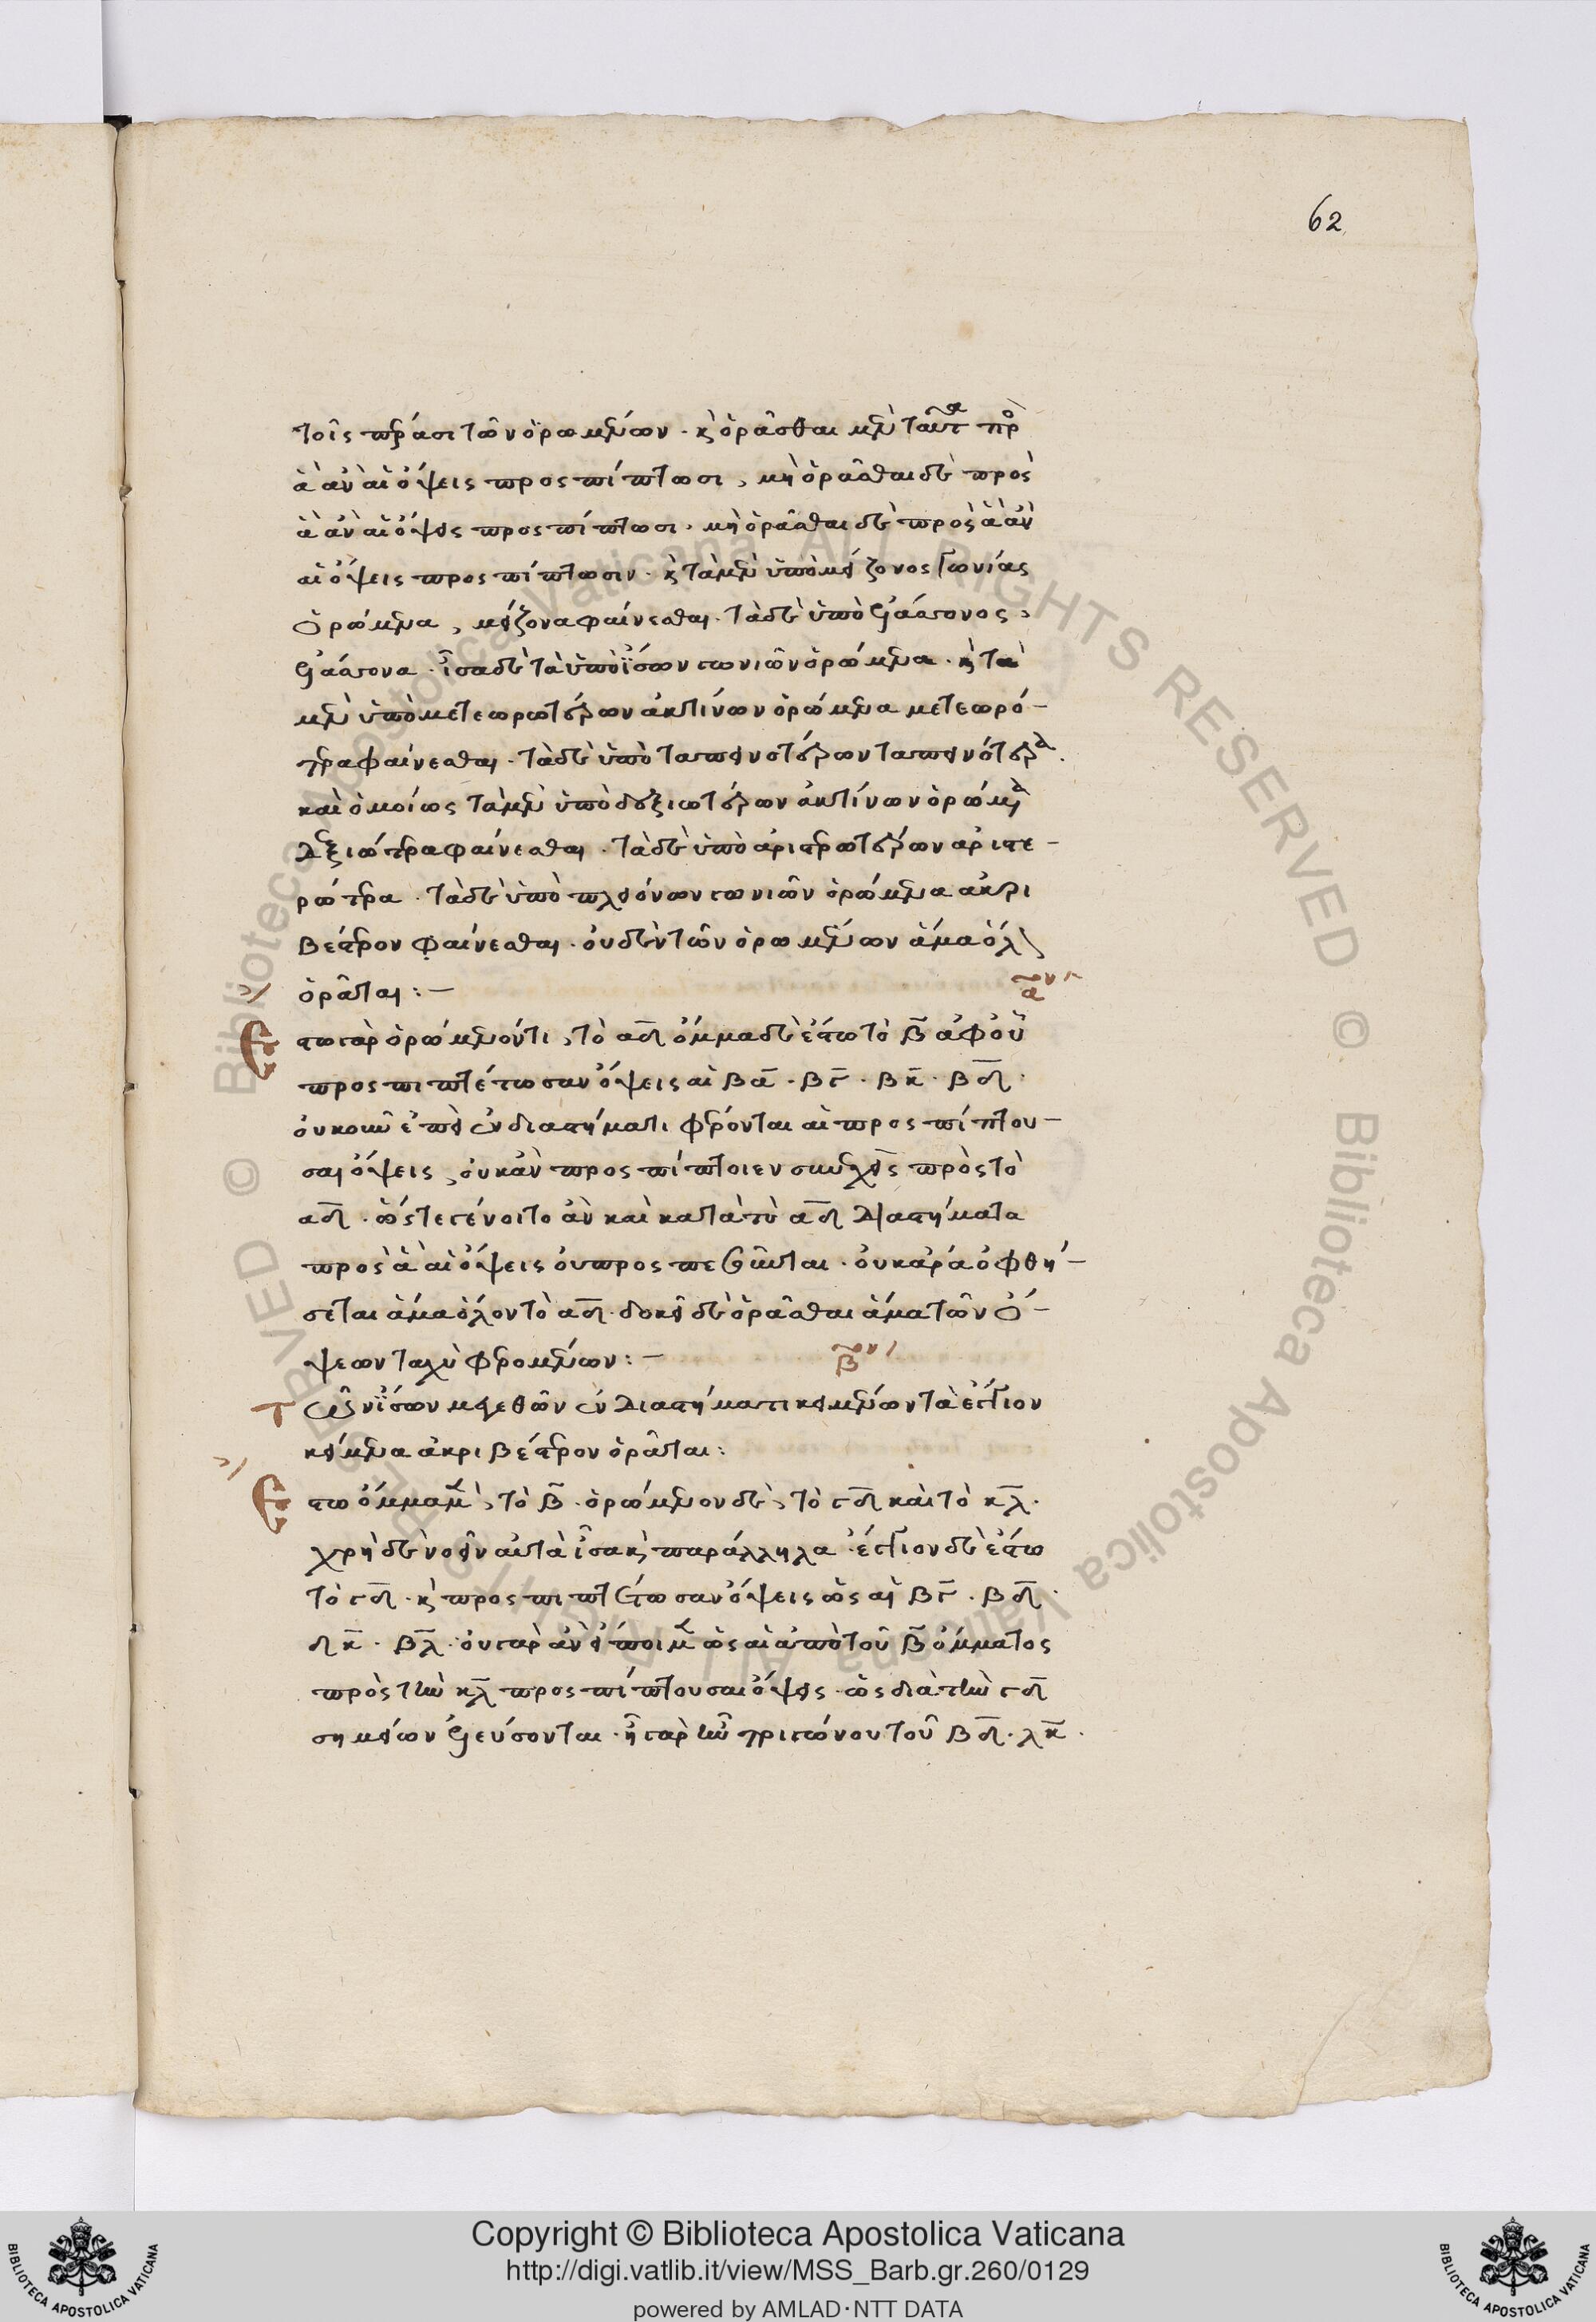 62
τοῖς πέρασι τῶν ὁρωμένων. κὶ ὁρᾶσθαι μὲν ταῦτα πρὸ
ἃ ἂν αἱ ὄψεις προσπίπτωσι, μὴ ὁρᾶσθαι δὲ πρὸς
ἃ ἂν αἱ ὄψεις προσπίπτωσι. μὴ ὁρᾶσθαι δὲ πρὸς ἃ ἂν
αἱ ὄψεις προσπίπτωσιν. κὶ τὰ μὲν ὑπὸ μείζονος γωνίας
ὁρώμενα, μείζονα φαίνεσθαι. τὰ δὲ ὑπὸ ἐλάσσονος,
ἐλάσσονα. ἴσα δὲ τὰ ὑπὸ ἴσων γωνιῶν ὁρώμενα. κὶ τὰ
μὲν ὑπὸ μετεωροτέρων ἀκτίνων ὁρώμενα μετεωρό-
τερα φαίνεσθαι. τὰ δὲ ὑπὸ ταπεινοτέρων ταπεινότερα.
καὶ ὁμοίως τὰ μὲν ὑπὸ δεξιωτέρων ἀκτίνων ὁρώμενα
δεξιώτερα φαίνεσθαι. τὰ δὲ ὑπὸ ἀριστερωτέρων ἀριστε-
ρώτερα. τὰ δὲ ὑπὸ πλειόνων γωνιῶν ὁρώμενα ἀκρι
βέστερον φαίνεσθαι. οὐδὲν τῶν ὁρωμένων ἅμα ὅλον
ὁρᾶται:—
αον
Ἔστω γὰρ ὁρώμενόν τι, τὸ αδ ὄμμα δὲ ἔστω τὸ β ἀφ οὗ
προσπιπτέτωσαν ὄψεις αἱ βα. βγ. βκ. βδ.
οὐκοῦν ἐπεὶ ἐν διαστήματι φέρονται αἱ προσπίπτου-
σαι ὄψεις, οὐκ ἂν προσπίπτοιεν συνεχεῖς πρὸς τὸ
αδ. ὥστε γένοιτο ἂν καὶ κατὰ τὸ αδ διαστήματα
πρὸς ἃ αἱ ὄψεις οὐ προσπεσοῦνται. οὐκ ἄρα ὀφθή-
σεται ἅμα ὅλον τὸ αδ. δοκεῖ δὲ ὁρᾶσθαι ἅμα τῶν ὄ-
ψεων ταχὺ φερομένων:—
βον
Τῶν ἴσων μεγεθῶν ἐν διαστήματι κειμένων τὰ ἔγγιον
κείμενα ἀκριβέστερον ὁρᾶται:
Ἔστω ὄμμα μὲν, τὸ β. ὁρώμενον δὲ, τὸ γδ καὶ τὸ κλ.
χρὴ δὲ νοεῖν αὐτὰ ἴσα κὶ παράλληλα. ἔγγιον δὲ ἔστω
τὸ γδ. κὶ προσπιπτέτωσαν ὄψεις ὡς αἱ βγ. βδ.
δκ. βλ. οὐ γὰρ ἂν εἴποιμεν ὡς αἱ ἀπὸ τοῦ β ὄμματος
πρὸς τὴν κλ προσπίπτουσαι ὄψεις. ὡς διὰ τὴν γδ
σημείων ἐλεύσονται. ἢ γὰρ ἂν τριγώνου τοῦ βδ. λκ.
Copyright © Biblioteca Apostolica Vaticana
http://digi.vatlib.it/view/MSS_Barb.gr.260/0129
powered by AMLAD·NTT DATA